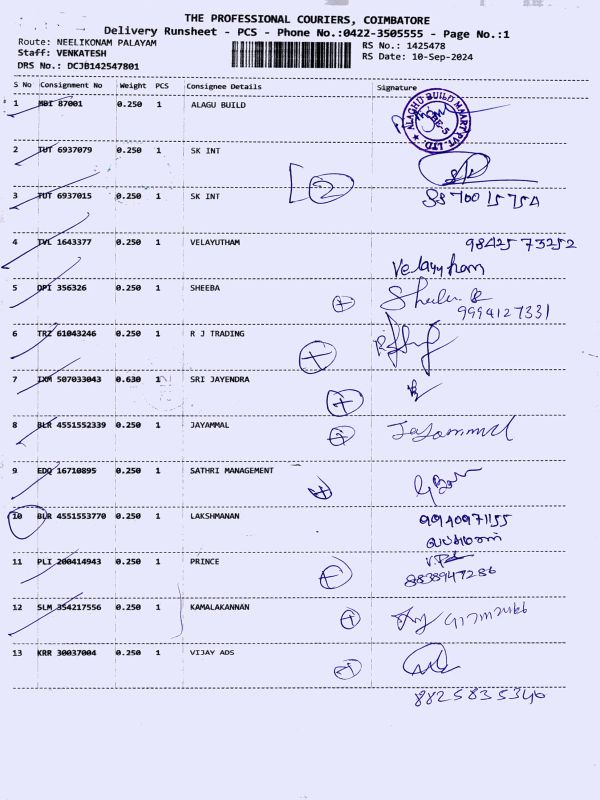 THE PROFESSIONAL COURIERS, COIMBATORE
Delivery Runsheet - PCS - Phone No.:0422-3505555 - Page No.:1
Route: NEELIKONAM PALAYAM
Staff: VENKATESH
DRS No.: DCJB142547801
RS No.: 1425478
RS Date: 10-Sep-2024
S No Consignment No Weight PCS Consignee Details Signature
1 MBI 87001 0.250 1 ALAGU BUILD
2 TUT 6937079 0.250 1 SK INT
3 TUT 6937015 0.250 1 SK INT 2
4 TVL 1643377 0.250 1 VELAYUTHAM 98425 73252
Velayutham
5 DPI 356326 0.250 1 SHEEBA
9994127331
6 TRZ 61043246 0.250 1 R J TRADING
7 IXM 507033043 0.630 1 SRI JAYENDRA
8 BLR 4551552339 0.250 1 JAYAMMAL
9 EDQ 16710895 0.250 1 SATHRI MANAGEMENT
10 BLR 4551553770 0.250 1 LAKSHMANAN 9940971155
11 PLI 200414943 0.250 1 PRINCE
8838947286
12 SLM 354217556 0.250 1 KAMALAKANNAN
13 KRR 30037004 0.250 1 VIJAY ADS
8825835346